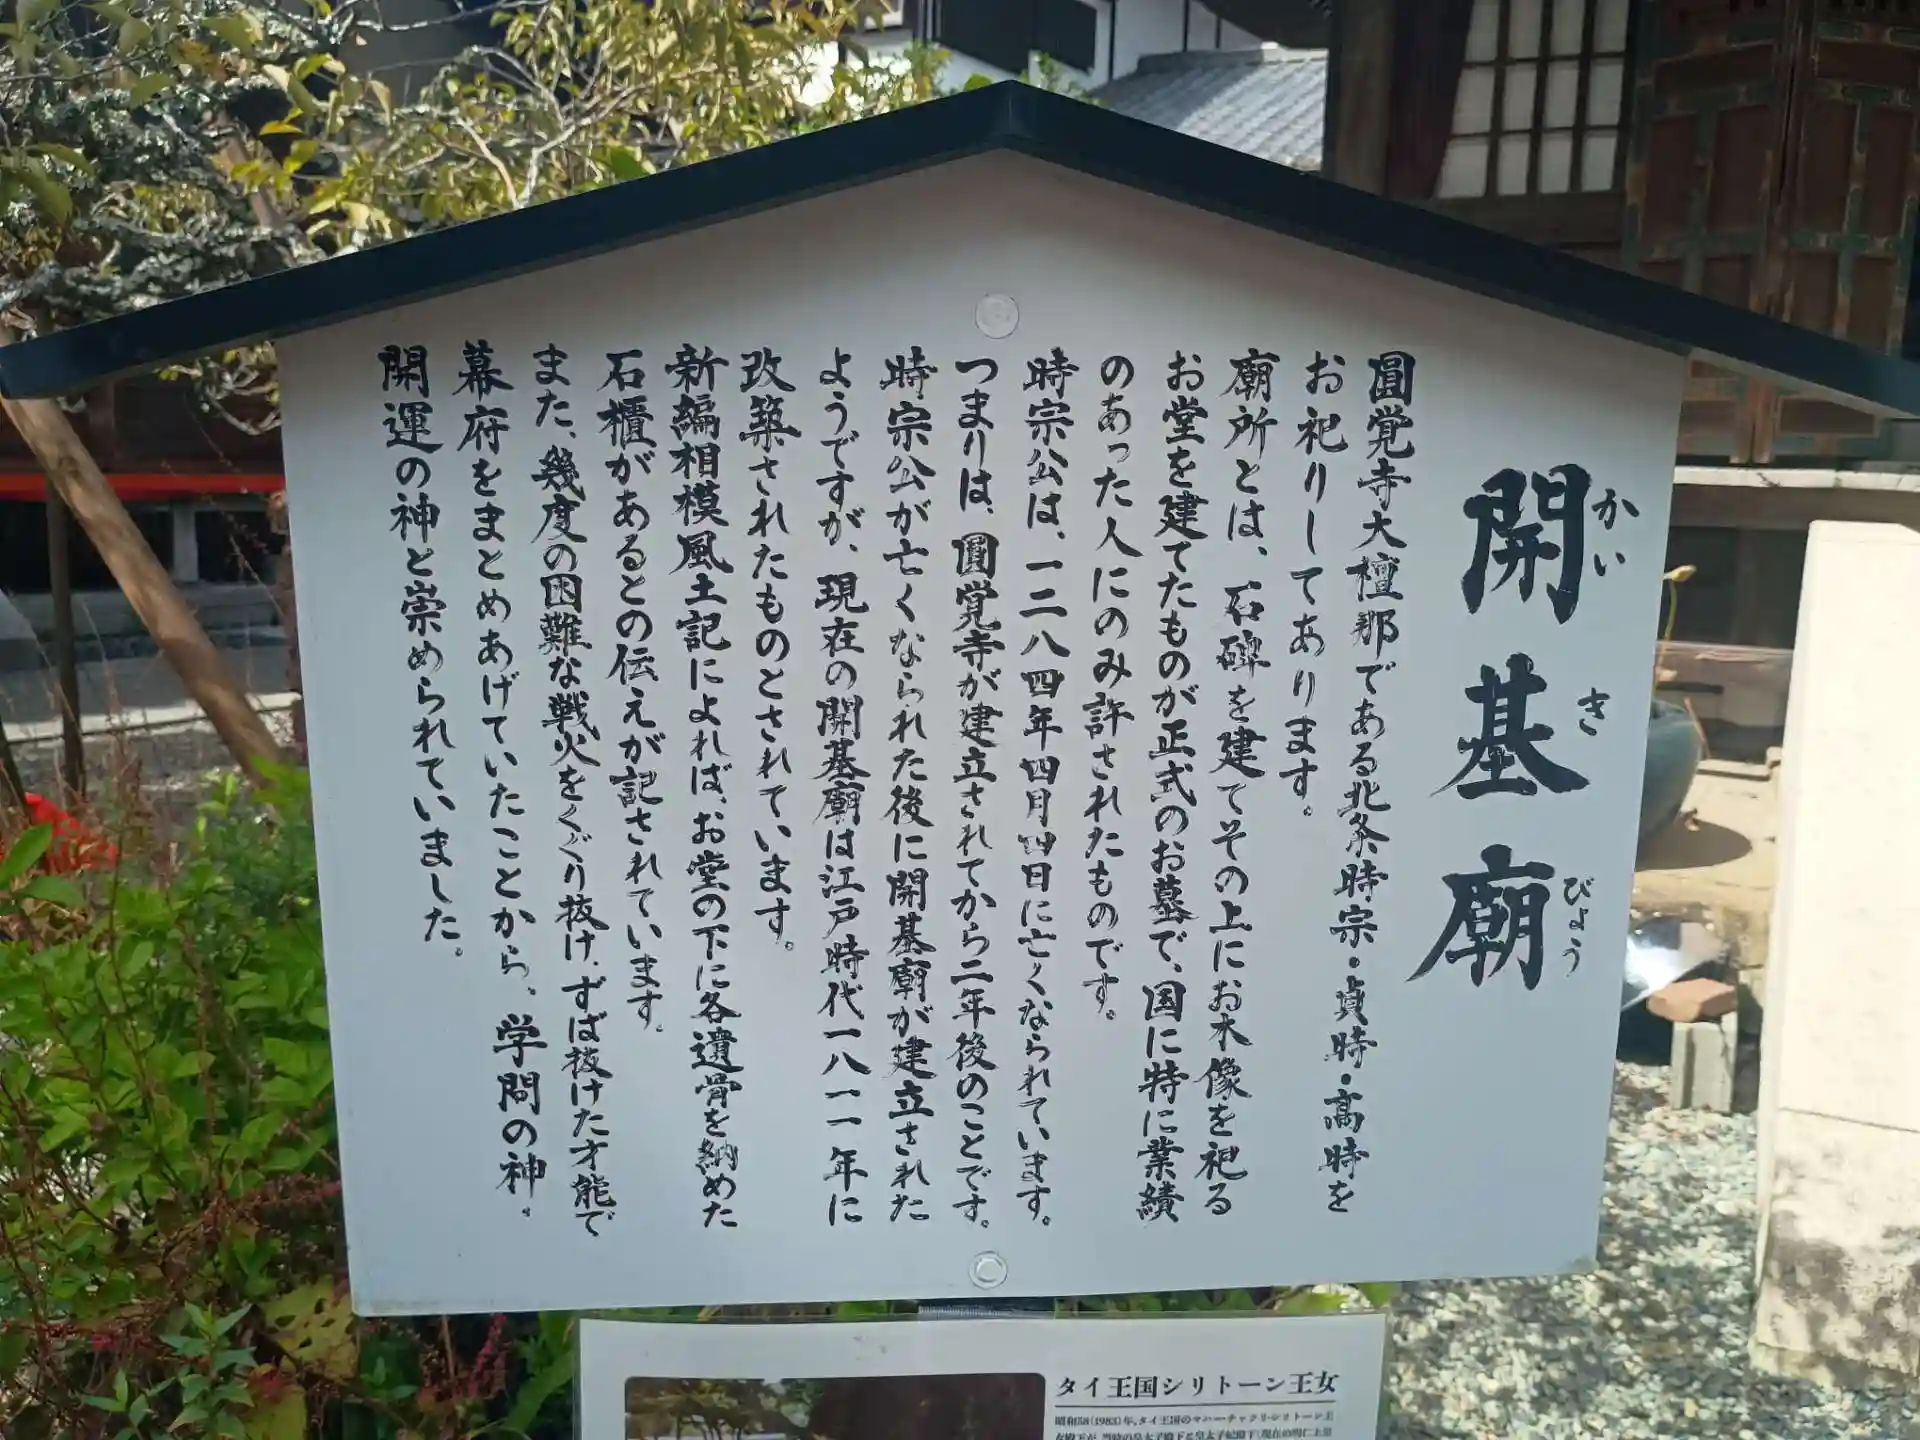 開基廟
かい き びょう
圓覚寺大檀那である北条時宗・貞時・高時を
お祀りしてあります。
廟所とは、石碑を建てその上にお木像を祀る
お堂を建てたものが正式のお墓で、国に特に業績
のあった人にのみ許されたものです。
時宗公は、一二八四年四月四日に亡くなられています。
つまりは、圓覚寺が建立されてから二年後のことです。
時宗公が亡くなられた後に開基廟が建立された
ようですが、現在の開基廟は江戸時代一八一一年に
改築されたものとされています。
新編相模風土記によれば、お堂の下に各遺骨を納めた
石櫃があるとの伝えが記されています。
また、幾度の困難な戦火をくぐり抜け、ずば抜けた才能で
幕府をまとめあげていたことから、学問の神、
開運の神と崇められていました。
タイ王国シリトーン王女
昭和58(1983)年、タイ王国のマハー・チャクリ・シリトーン王